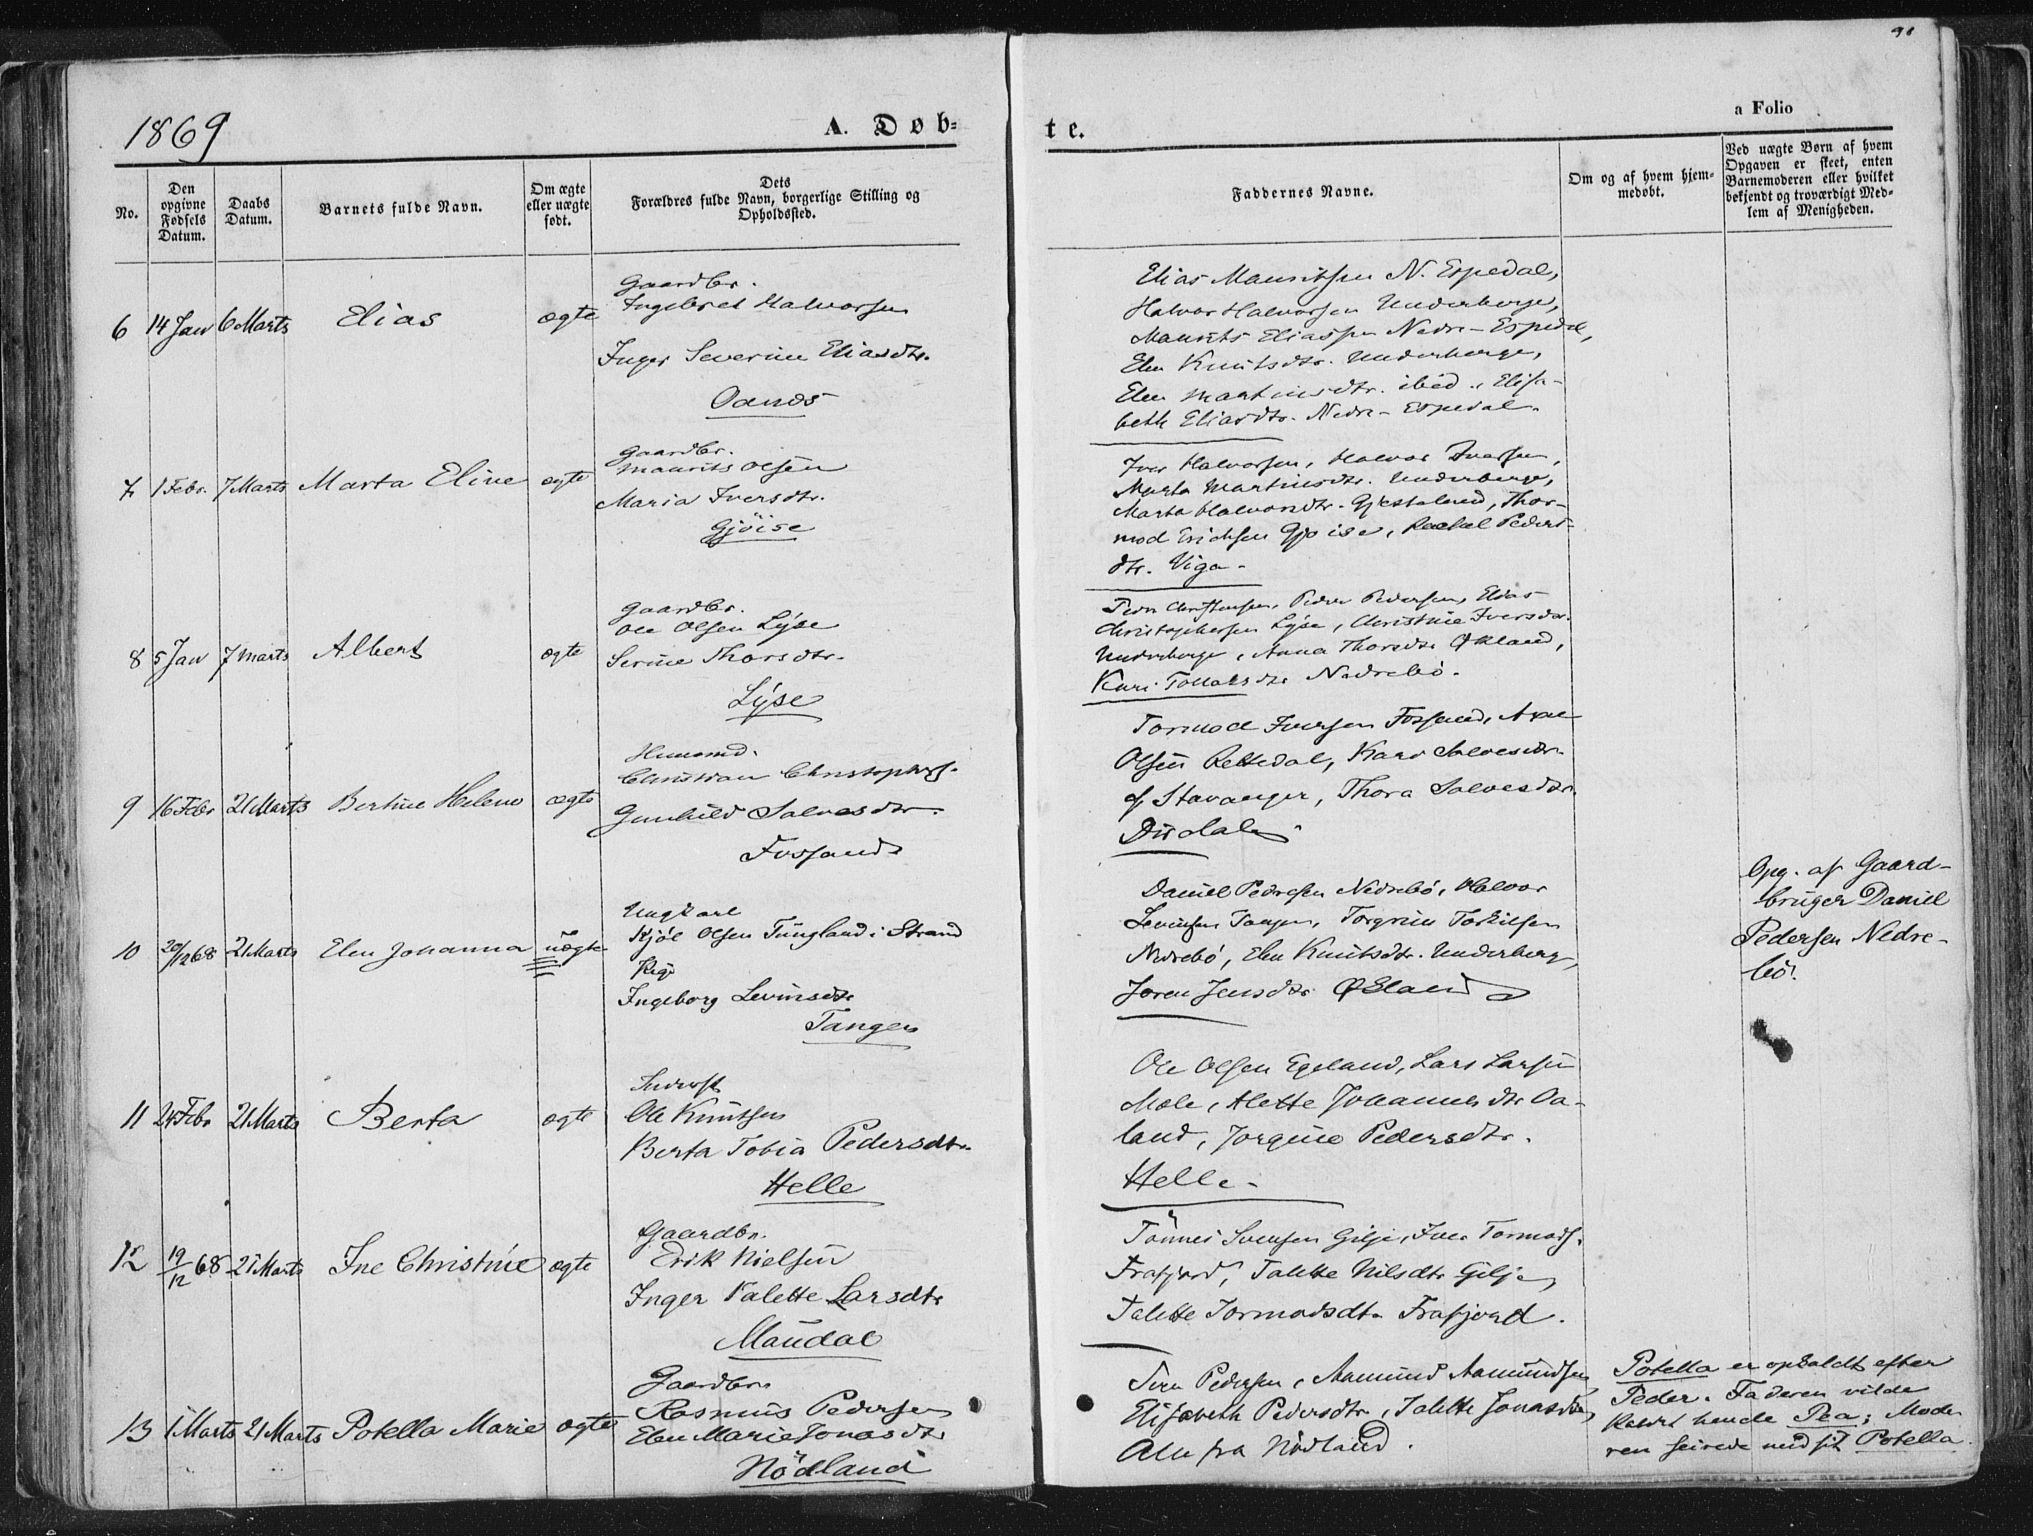 1869
A. Døb=
No.
Den
opgivne
Fødsels
Datum.
Daabs
Datum.
Barnets fulde Navn.
Om ægte
eller uægte
født.
Dets
Forældres fulde Navn, borgerlige Stilling og
Opholdssted.
6 14 Jan 6 Marts Elias ægte
Gaardbr.
Ingebret Halvorsen
Inger Severine Eliasdtr.
Oanæs
7 1 Febr. 7 Marts Marta Eline ægte
Gaardbr.
Maurits Olsen
Maria Iversdtr.
Gjöise
8 5 Jan 7 Marts Albert ægte
Gaardbr.
Ole Olsen Lyse
Serine Thorsdtr.
Lyse
9 16 Febr 21 Marts Bertine Helene ægte
Huusmd.
Christian Christophers.
Gunhild Salvesdtr.
Fossand
10 20/12 68 21 Marts Elen Johanna uægte
Ungkarl
Kjöl Olsen Tungland i Strand
Pige
Ingeborg Levinsdtr
Tangen
11 24 Febr 21 Marts Berta ægte
Inderst
Ole Knutsen
Berta Tobia Pedersdtr.
Helle
12 19/12 68 21 Marts Ine Christine ægte
Gaardbr.
Erik Nielsen
Inger Valette Larsdtr
Maudal
13 1 Marts 21 Marts Potella Marie ægte
Gaardbr
Rasmus Pedersen
Elen Marie Jonasdtr
Nödland
te.
a Folio
Faddernes Navne.
Om og af hvem hjem=
medøbt.
Ved uægte Børn af hvem
Opgaven er skeet, enten
Barnemoderen eller hvilket
bekjendt og troværdigt Med=
lem af Menigheden.
Elias Mauritsen N. Espedal,
Halvor Halvorsen Underberge,
Maurits Eliassen Nedre-Espedal,
Elen Knutsdtr. Underberge,
Elen Martinsdtr. ibid., Elisa-
beth Eliasdtr. Nedre-Espedal.
Iver Halvorsen, Halvor Iversen,
Marta Martinsdtr. Underberge,
Marta Halvorsdtr. Gjestelund, Thor-
mod Erichsen Gjöise, Rachel Peders-
dtr. Viga.
Christensen, Peder Pedersen, Elias
Christophersen Lyse, Christine Iversdtr.
Underberge, Anna Thorsdtr Økland,
Kari Dtr Nedrebö.
Tormod Iversen Fossand,
Olsen Rettedal, Kari Salvesdtr.
af Stavanger, Thora Salvesdtr.
Dirdal
Daniel Pedersen Nedrebö, Halvor
Levinsen Tangen, Torgrim Torkilsen
Nedrebö, Elen Knutsdtr. Underberge,
Joren Jensdtr Økland
Ole Olsen Egeland, Lars Larsen
Mæle, Alette Johannesdtr Oa-
land, Jorgine Pedersdtr.
Helle.
Tönnes Svensen Gilje, Iver Tormods.
Frafjord, Talette Nilsdtr Gilje,
Talette Tormodsdtr Frafjord.
Pedersen, Aamund Aamundsen
Elisabeth Pedersdtr, Talette Jonasdtr,
Alle fra Nödland.
Opg. af Gaard-
bruger Daniel
Pedersen Nedre-
bö.
Potella er opkaldt efter
Peder. Faderen vilde
kaldt hende Pea; Mode
ren seirede med sit Potella.